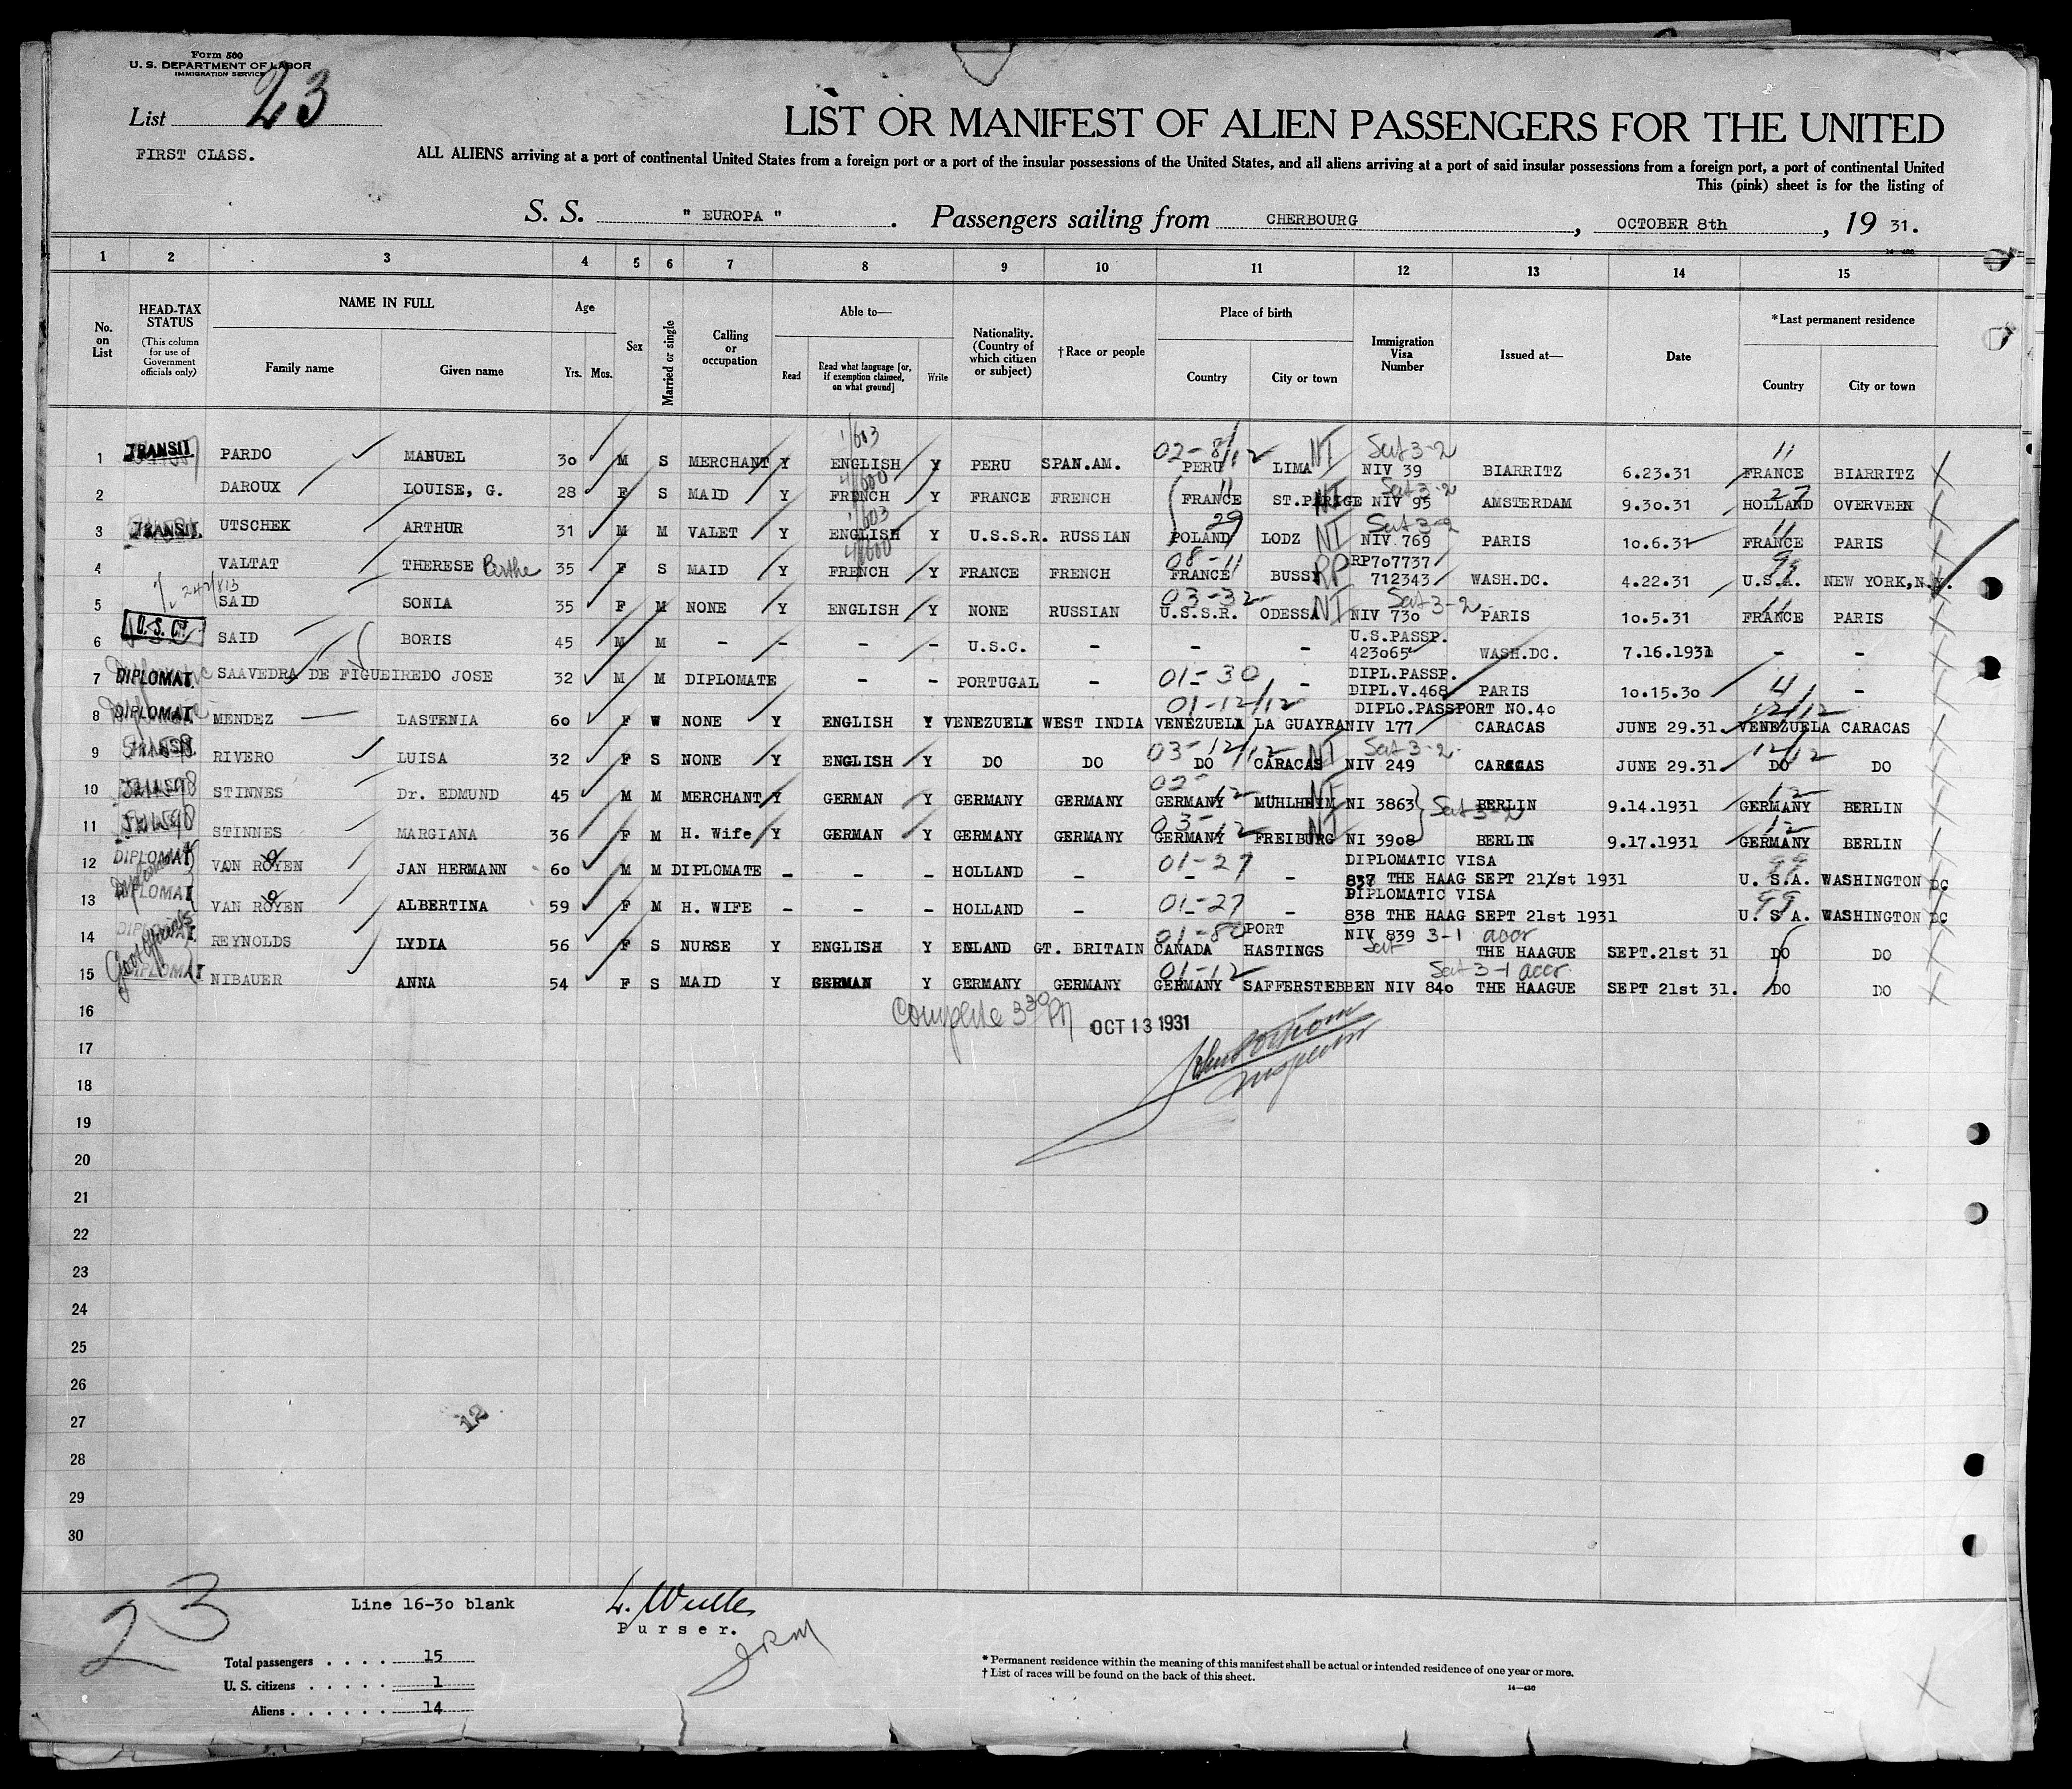 Form 500
U. S. DEPARTMENT OF LABOR
IMMIGRATION SERVICE
List 23
FIRST CLASS.
LIST OR MANIFEST OF ALIEN PASSENGERS FOR THE UNITED
ALL ALIENS arriving at a port of continental United States from a foreign port or a port of the insular possessions of the United States, and all aliens arriving at a port of said insular possessions from a foreign port, a port of continental United
This (pink) sheet is for the listing of
S. S. " EUROPA " . Passengers sailing from CHERBOURG , OCTOBER 8th , 19 31.
1 2 3 4 5 6 7 8 9 10 11 12 13 14 15
No. on List
HEAD-TAX STATUS (This column for use of Government officials only)
NAME IN FULL
Family name Given name
Age
Yrs. Mos.
Sex
Married or single
Calling or occupation
Able to—
Read Read what language [or, if exemption claimed, on what ground] Write
Nationality. (Country of which citizen or subject)
†Race or people
Place of birth
Country City or town
Immigration Visa Number
Issued at—
Date
*Last permanent residence
Country City or town
1 TRANSIT PARDO MANUEL 30 M S MERCHANT Y ENGLISH Y PERU SPAN.AM. PERU LIMA NIV 39 BIARRITZ 6.23.31 FRANCE BIARRITZ
2 DAROUX LOUISE, G. 28 F S MAID Y FRENCH Y FRANCE FRENCH FRANCE NIV 95 AMSTERDAM 9.30.31 HOLLAND OVERVEEN
3 TRANSIT. UTSCHEK ARTHUR 31 M M VALET Y ENGLISH Y U.S.S.R. RUSSIAN POLAND LODZ NIV 769 PARIS 10.6.31 FRANCE PARIS
4 VALTAT THERESE Berthe 35 F S MAID Y FRENCH Y FRANCE FRENCH FRANCE BUSSY RP707737 712343 WASH.DC. 4.22.31 U.S.A. NEW YORK,N.Y.
5 SAID SONIA 35 F M NONE Y ENGLISH Y NONE RUSSIAN U.S.S.R. ODESSA NIV 730 PARIS 10.5.31 FRANCE PARIS
6 U.S.C. SAID BORIS 45 M M - - - - U.S.C. - - - U.S.PASSP. 423065 WASH.DC. 7.16.1931 - -
7 DIPLOMAT. SAAVEDRA DE FIGUEIREDO JOSE 32 M M DIPLOMATE - - PORTUGAL - 01-30 - DIPL.PASSP. DIPL.V.468 PARIS 10.15.30 -
8 DIPLOMAT. MENDEZ LASTENIA 60 F W NONE Y ENGLISH Y VENEZUELA WEST INDIA VENEZUELA LA GUAYRA DIPLO.PASSPORT NO.40 NIV 177 CARACAS JUNE 29.31. VENEZUELA CARACAS
9 RIVERO LUISA 32 F S NONE Y ENGLISH Y DO DO DO CARACAS NIV 249 CARACAS JUNE 29.31 DO DO
10 STINNES Dr. EDMUND 45 M M MERCHANT Y GERMAN Y GERMANY GERMANY GERMANY MUHLHEIM NI 3863 BERLIN 9.14.1931 GERMANY BERLIN
11 STINNES MARGIANA 36 F M H. Wife Y GERMAN Y GERMANY GERMANY GERMANY FREIBURG NI 3908 BERLIN 9.17.1931 GERMANY BERLIN
12 DIPLOMAT VAN ROYEN JAN HERMANN 60 M M DIPLOMATE - - - HOLLAND - 01-27 - - DIPLOMATIC VISA 837 THE HAAG SEPT 21st 1931 U. S.A. WASHINGTON DC
13 DIPLOMAT VAN ROYEN ALBERTINA 59 F M H. WIFE - - - HOLLAND - 01-27 - DIPLOMATIC VISA 838 THE HAAG SEPT 21st 1931 U. S.A. WASHINGTON DC
14 DIPLOMAT. REYNOLDS LYDIA 56 F S NURSE Y ENGLISH Y ENLAND GT. BRITAIN CANADA PORT HASTINGS NIV 839 3-1 THE HAAGUE SEPT.21st 31 DO DO
15 DIPLOMAT NIBAUER ANNA 54 F S MAID Y GERMAN Y GERMANY GERMANY 01-12 GERMANY SAFFERSTEBBEN NIV 840 THE HAAGUE SEPT 21st 31. DO DO
16 Complete 3 30 PM OCT 13 1931
17
18 Inspector
19
20
21
22
23
24
25
26
27 12
28
29
30
23
Line 16-30 blank
Purser.
JRM
Total passengers . . . . 15
U. S. citizens . . . . . 1
Aliens . . . . . . 14
* Permanent residence within the meaning of this manifest shall be actual or intended residence of one year or more.
† List of races will be found on the back of this sheet.
14—430